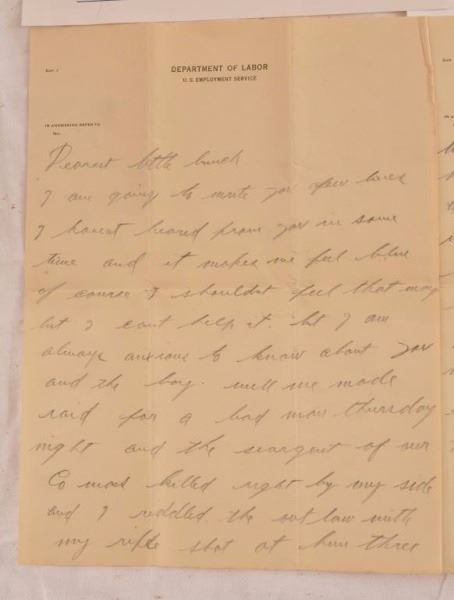 DEPARTMENT OF LABOR
U. S. EMPLOYMENT SERVICE
IN ANSWERING REFER TO
No.
Dearest little bunch
I am going to write you few lines
I havent heared from you in some
time and it makes me feel blue
of course I shouldnt feel that way
but I cant help it. but I am
always anxious to know about you
and the boy. well we made
raid for a bad man thursday
night and the seargent of our
Co was killed right by my side
and I riddled the out law with
my rifle shot at him three